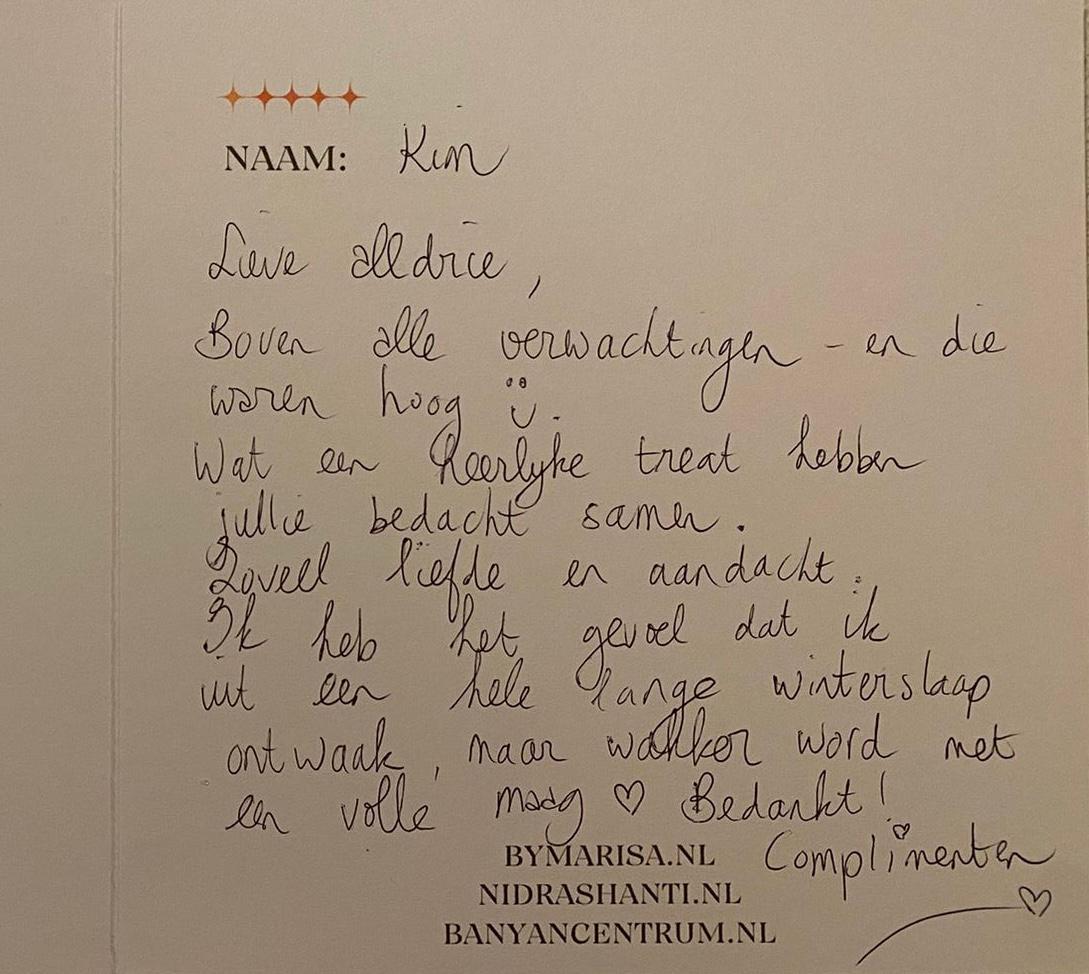 NAAM: Kim
Lieve alledrie,
Boven alle verwachtingen - en die
waren hoog ü.
Wat een heerlyke treat hebben
jullie bedacht samen.
Zoveel liefde en aandacht.
Ik heb het gevoel dat ik
uit een hele lange winterslaap
ontwaak, maar wakker word met
een volle maag ♡ Bedankt!
Complimenten
BYMARISA.NL
NIDRASHANTI.NL
BANYANCENTRUM.NL